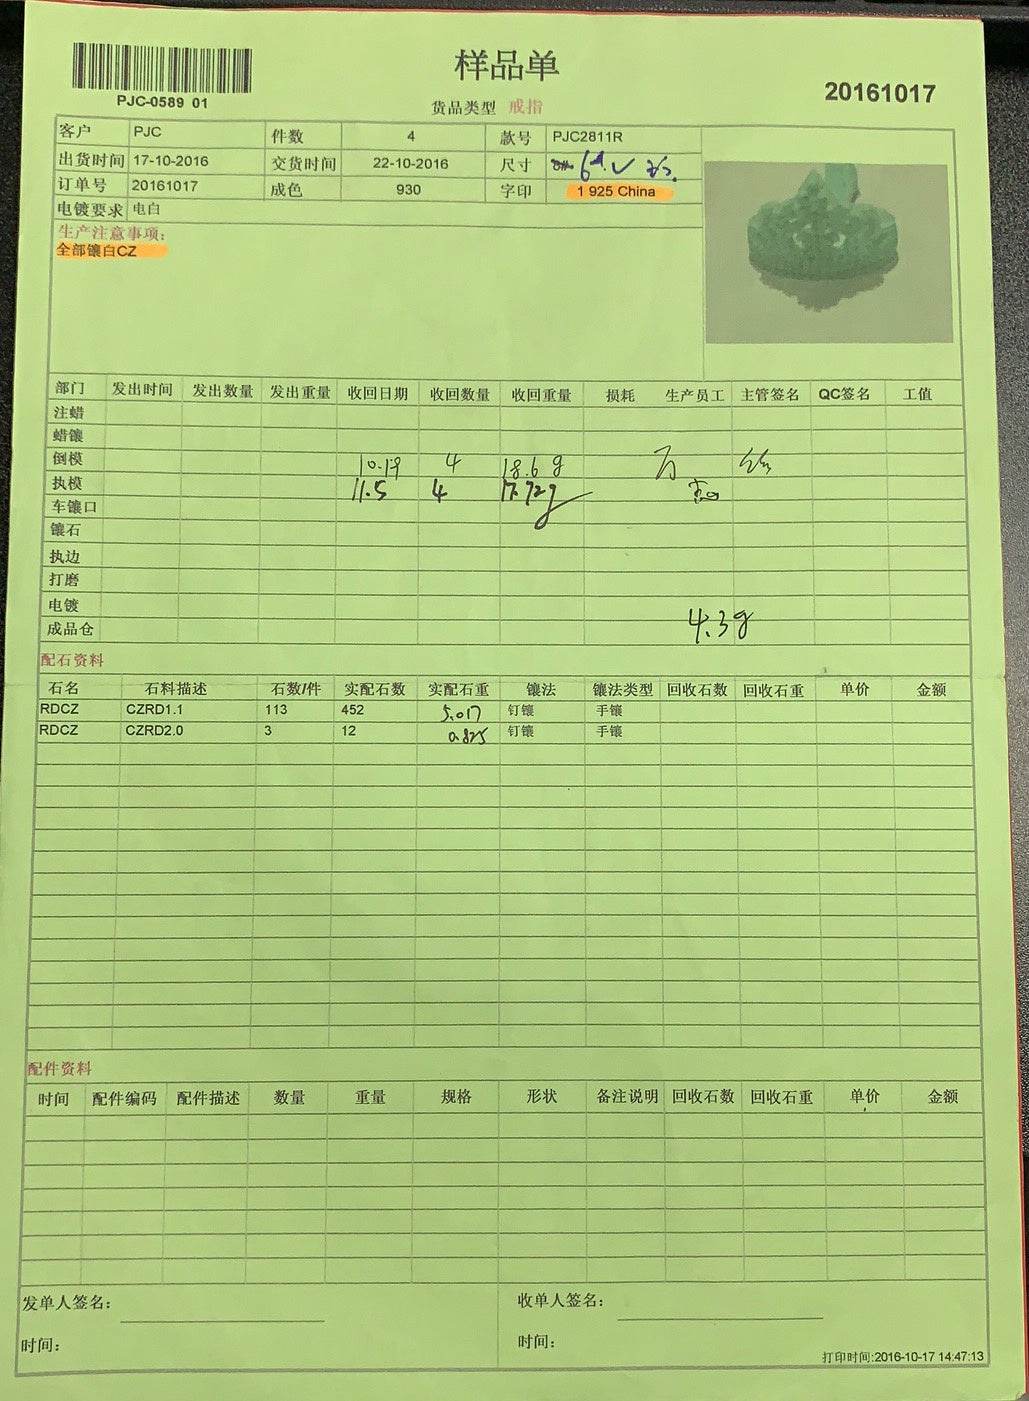 样品单
PJC-0589 01
20161017
货品类型 戒指
客户 PJC 件数 4 款号 PJC2811R
出货时间 17-10-2016 交货时间 22-10-2016 尺寸 6#
订单号 20161017 成色 930 字印 1 925 China
电镀要求 电白
生产注意事项:
全部镶白CZ
部门 发出时间 发出数量 发出重量 收回日期 收回数量 收回重量 损耗 生产员工 主管签名 QC签名 工值
注蜡
蜡镶
倒模 10.19 4 18.6g 万
执模 11.5 4 17.72g
车镶口
镶石
执边
打磨
电镀
成品仓 4.3g
配石资料
石名 石料描述 石数/件 实配石数 实配石重 镶法 镶法类型 回收石数 回收石重 单价 金额
RDCZ CZRD1.1 113 452 5.017 钉镶 手镶
RDCZ CZRD2.0 3 12 0.825 钉镶 手镶
配件资料
时间 配件编码 配件描述 数量 重量 规格 形状 备注说明 回收石数 回收石重 单价 金额
发单人签名: 收单人签名:
时间: 时间:
打印时间:2016-10-17 14:47:13